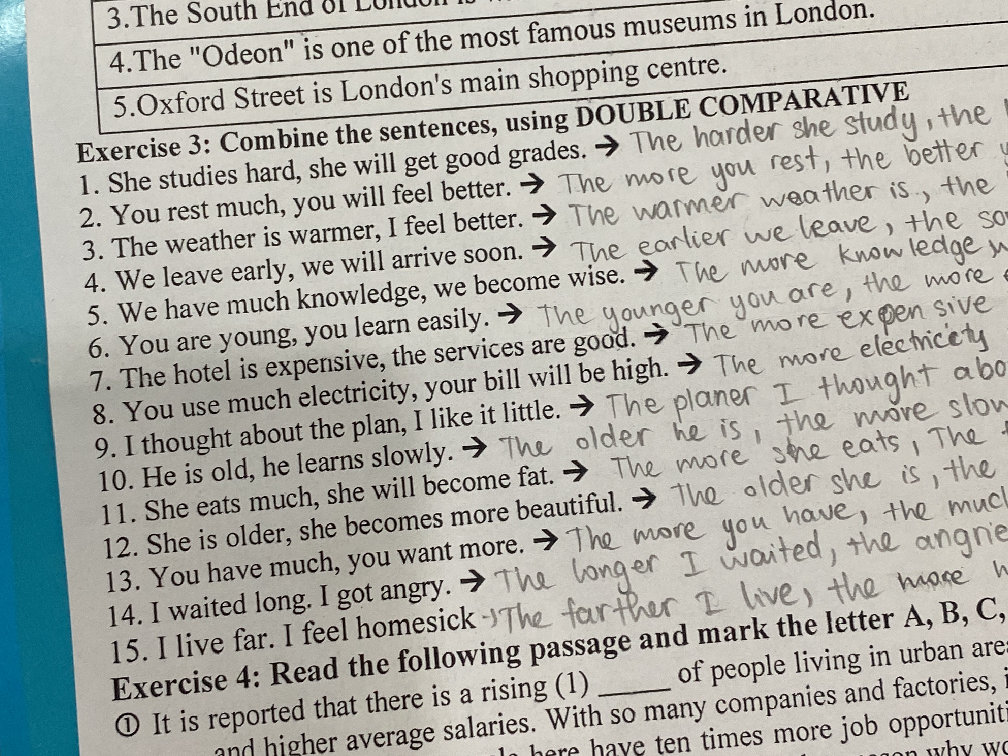 3.The South End of London
4.The "Odeon" is one of the most famous museums in London.
5.Oxford Street is London's main shopping centre.
Exercise 3: Combine the sentences, using DOUBLE COMPARATIVE
1. She studies hard, she will get good grades. → The harder she study, the
2. You rest much, you will feel better. → The more you rest, the better
3. The weather is warmer, I feel better. → The warmer weather is, the
4. We leave early, we will arrive soon. → The earlier we leave, the so
5. We have much knowledge, we become wise. → The more knowledge
6. You are young, you learn easily. → The younger you are, the more
7. The hotel is expensive, the services are good. → The more expensive
8. You use much electricity, your bill will be high. → The more electricety
9. I thought about the plan, I like it little. → The planer I thought abo
10. He is old, he learns slowly. → The older he is, the more slow
11. She eats much, she will become fat. → The more she eats, The
12. She is older, she becomes more beautiful. → The older she is, the
13. You have much, you want more. → The more you have, the muc
14. I waited long. I got angry. → The longer I waited, the angrie
15. I live far. I feel homesick → The farther I live, the more
Exercise 4: Read the following passage and mark the letter A, B, C,
① It is reported that there is a rising (1) _____ of people living in urban are
and higher average salaries. With so many companies and factories,
here have ten times more job opportunit
why